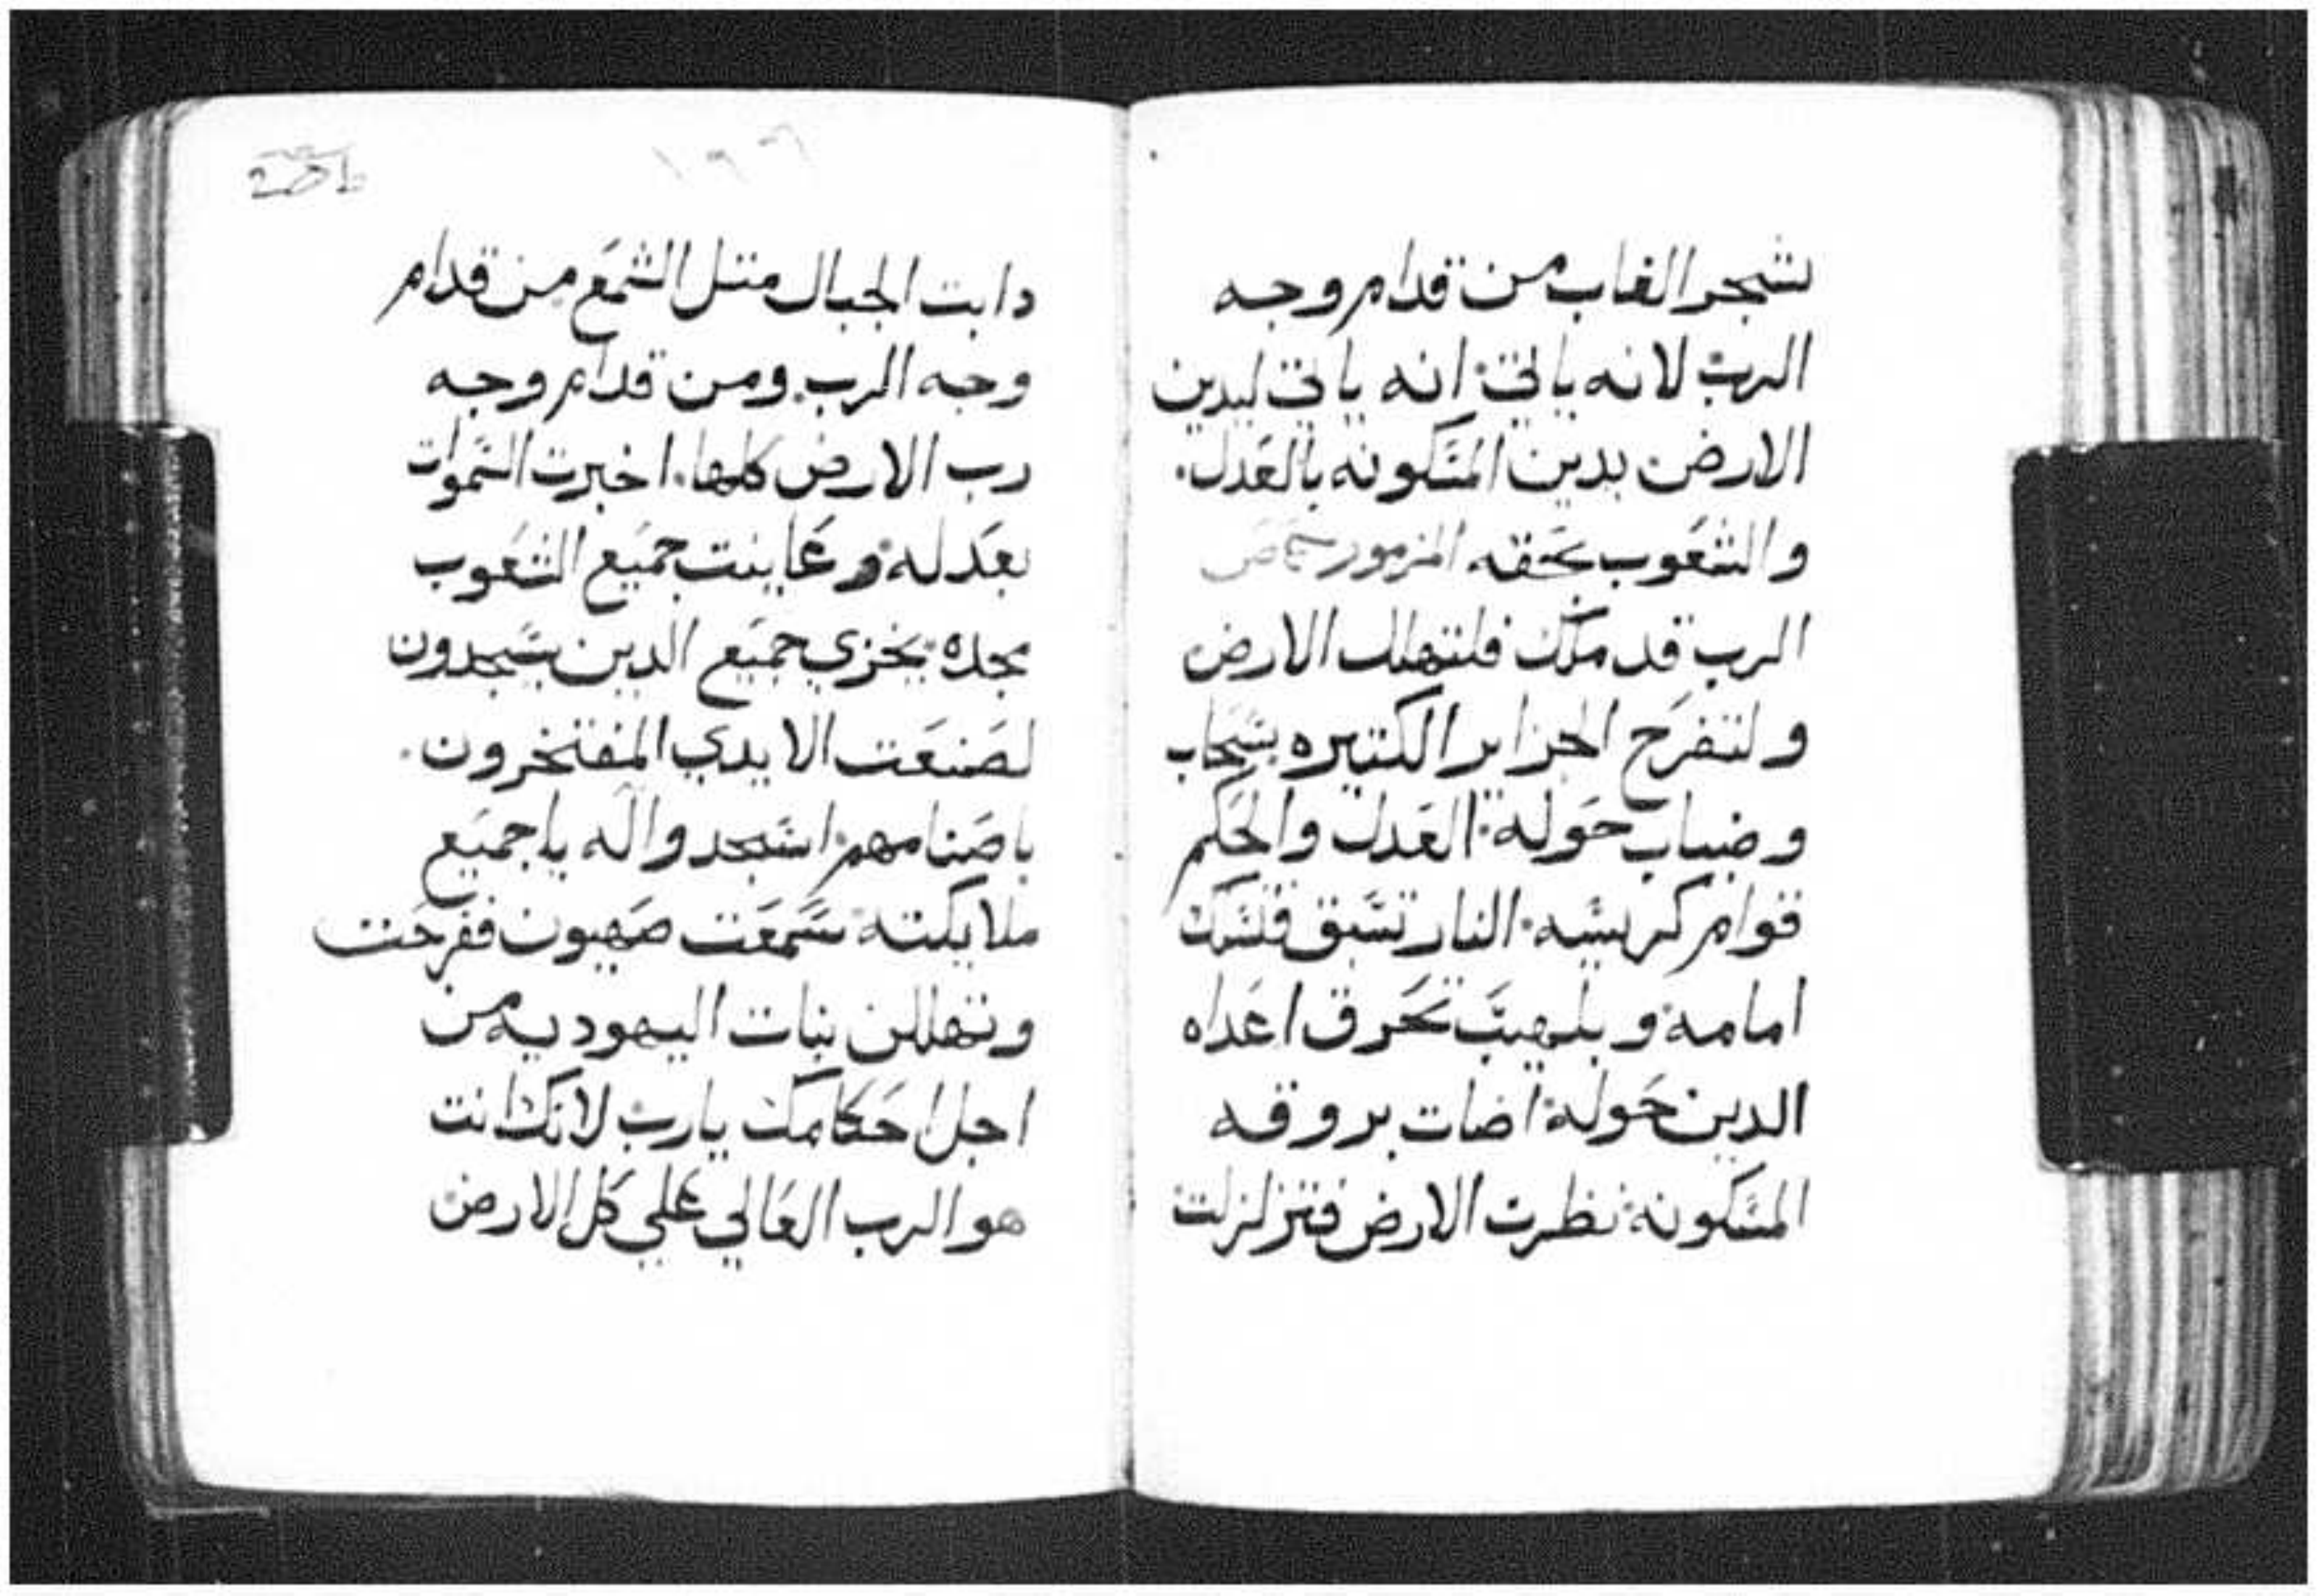 شجر الغاب من قدام وجه
الرب لانه ياتي انه ياتي ليدين
الارض بدين المسكونه بالعدل
والشعوب بحقه المزمور
الرب قد ملك فلتتهلل الارض
ولتفرح الجزاير الكتيره سحاب
وضباب حوله العدل والحكم
قوام كرسيه النار تسبق فتسلك
امامه وبلهيب تحرق اعداه
الدين حوله اضات بروقه
المسكونه نظرت الارض فتزلزلت
دابت الجبال متل الشمع من قدام
وجه الرب ومن قدام وجه
رب الارض كلها اخبرت السموات
بعدله وعاينت جميع الشعوب
مجده يخزي جميع الدين يسجدون
لصنعت الايدي المفتخرون
باصنامهم اسجدوا له يا جميع
ملايكته سمعت صهيون ففرحت
وتهللن بنات اليهوديه من
اجل احكامك يارب لانك انت
هو الرب العالي علي كل الارض